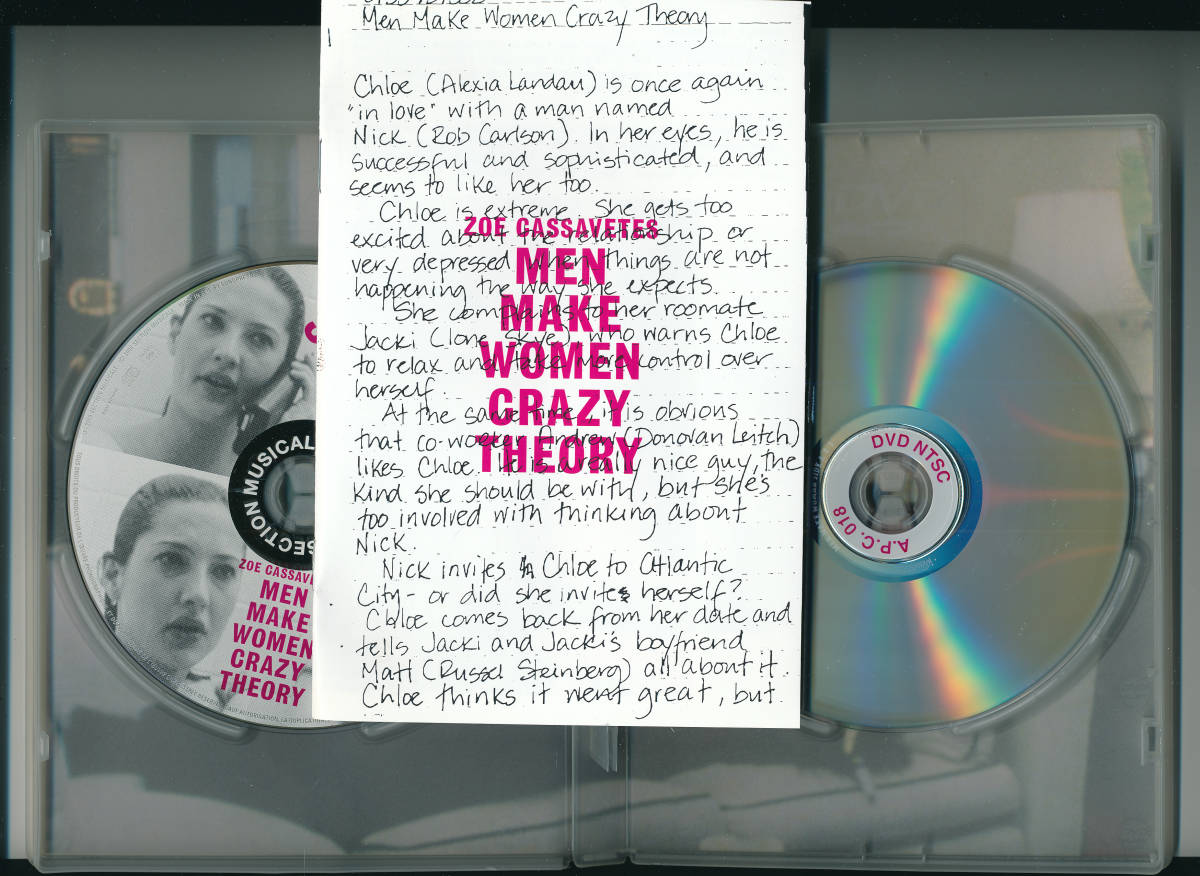 Men Make Women Crazy Theory
Chloe (Alexia Landau) is once again
"in love" with a man named
Nick (Rob Carlson). In her eyes, he is
successful and sophisticated, and
seems to like her too.
Chloe is extreme. She gets too
excited about the relationship or
very depressed when things are not
happening the way she expects.
She complains to her roomate
Jacki (Ione Skye), who warns Chloe
to relax and take more control over
herself.
At the same time, it is obvious
that co-worker Andrew (Donovan Leitch)
likes Chloe. He is a really nice guy, the
kind she should be with, but she's
too involved with thinking about
Nick.
Nick invites Chloe to Atlantic
City - or did she invite herself?
Chloe comes back from her date and
tells Jacki and Jacki's boyfriend
Matt (Russel Steinberg) all about it.
Chloe thinks it went great, but
ZOE CASSAVETES
MEN
MAKE
WOMEN
CRAZY
THEORY
SECTION MUSICAL
ZOE CASSAV
MEN
MAKE
WOMEN
CRAZY
THEORY
DVD NTSC
A.P.C. 018